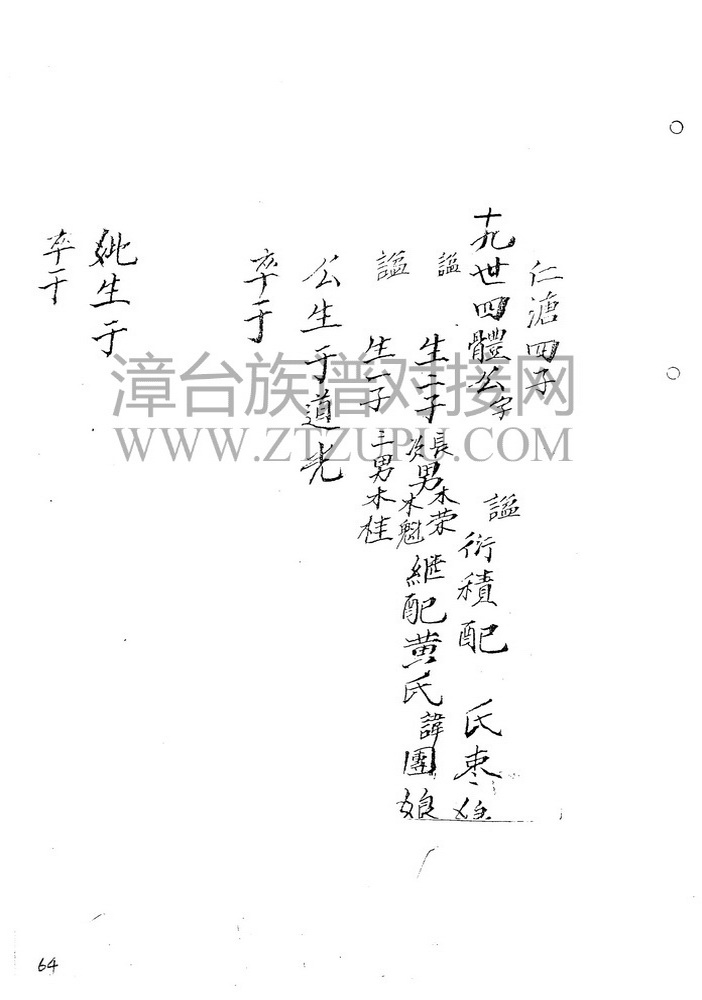 仁溏四子
十九世四體公字 謚衍積配 氏枣娘
謚 生二子長男木荣次男木魁継配黄氏諱團娘
謚 生一子三男木桂
公生于道光
卒于
妣生于
卒于
漳台族谱对接网
WWW.ZTZUPU.COM
64